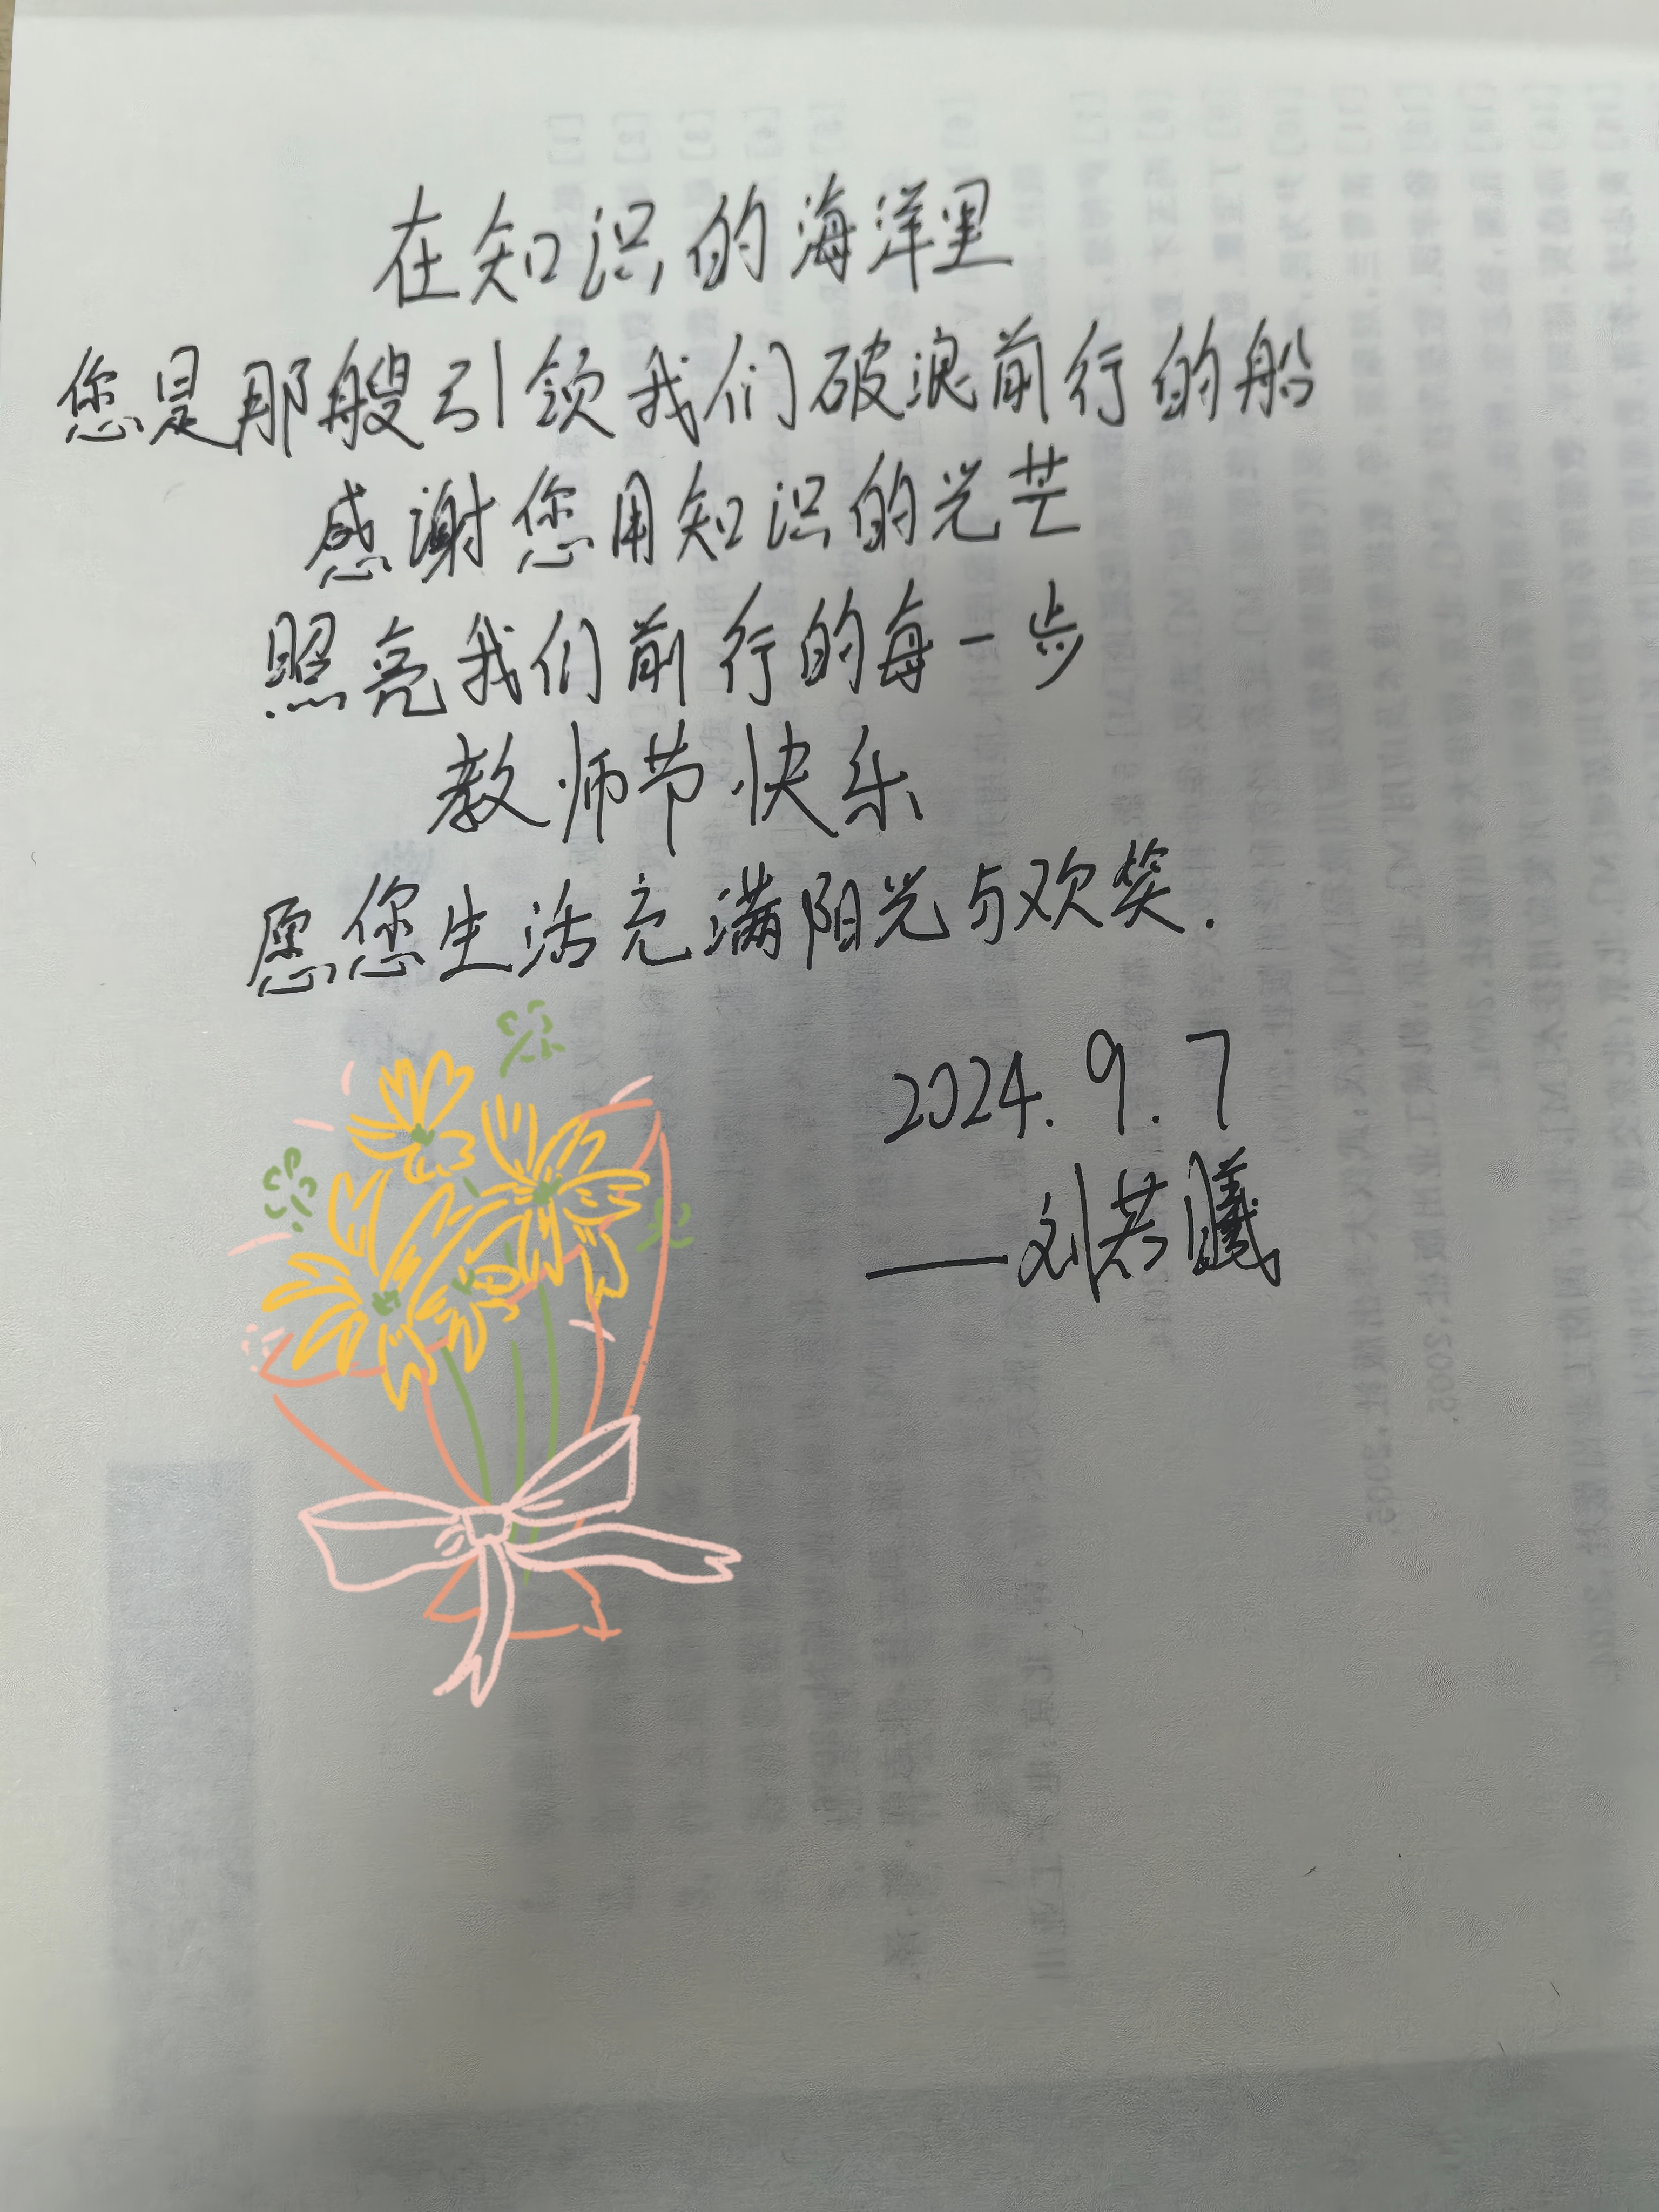 在知识的海洋里
您是那艘引领我们破浪前行的船
感谢您用知识的光芒
照亮我们前行的每一步
教师节快乐
愿您生活充满阳光与欢笑.
2024.9.7
——刘若曦